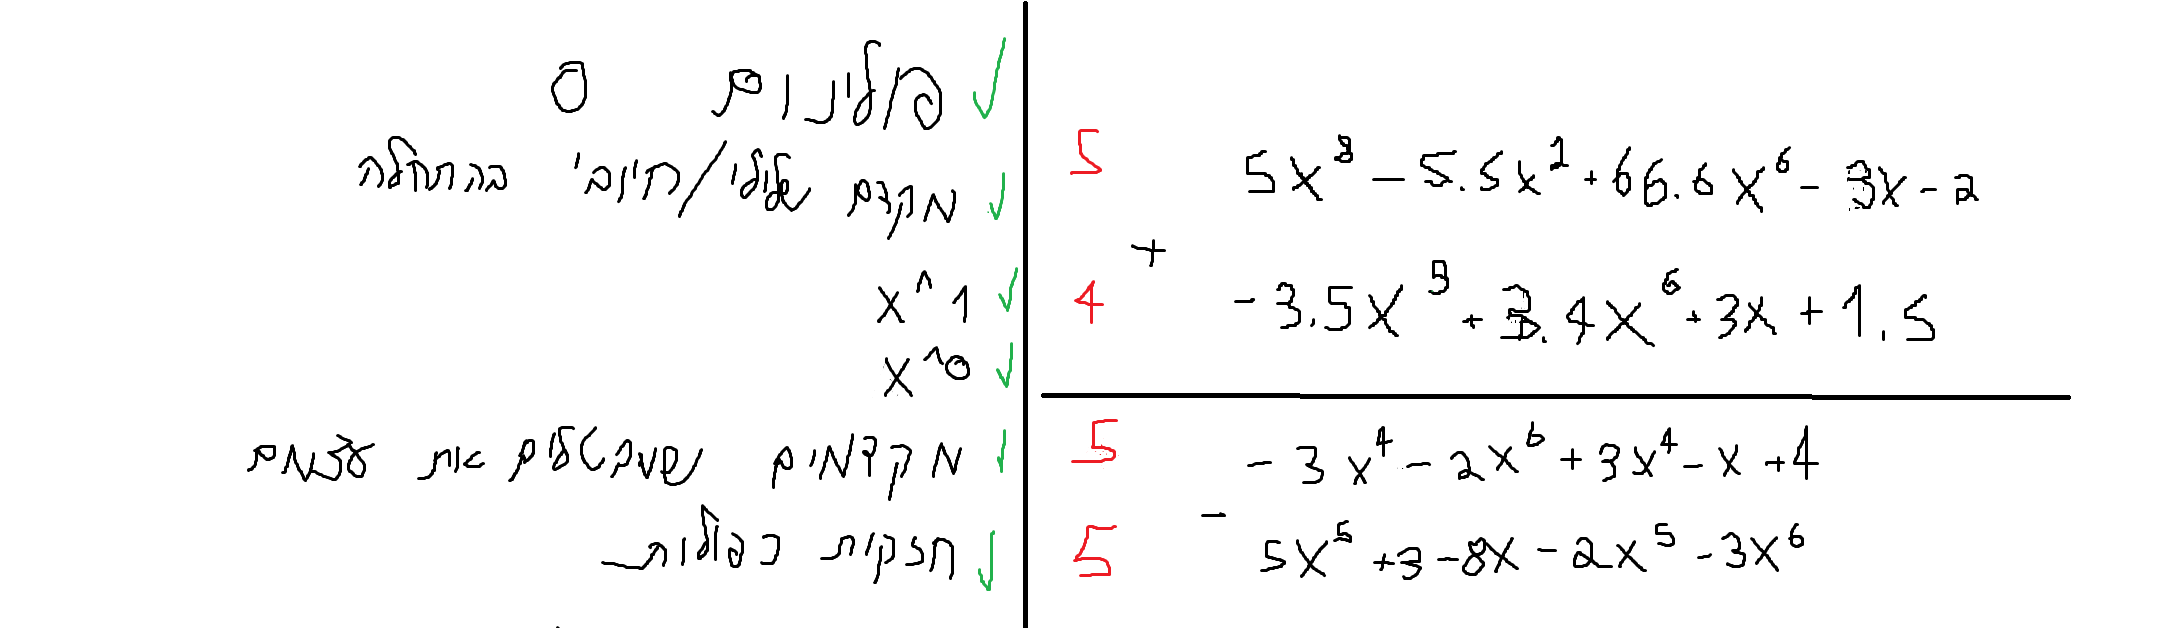 פולינום 0
מקדם שלילי/חיובי בהתחלה
x^1
x^0
מקדמים שמבטלים את עצמם
חזקות כפולות
5 5x³ - 5.5x² + 66.6x⁶ - 3x - 2
+
4 -3.5x⁹ + 3.4x⁶ + 3x + 1.5
5 -3x⁴ - 2x⁶ + 3x⁴ - x + 4
-
5 5x⁵ + 3 - 8x - 2x⁵ - 3x⁶